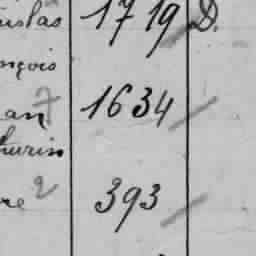 uslas 1719 D.
nçois
an 7 1634
hurin
re 2 393